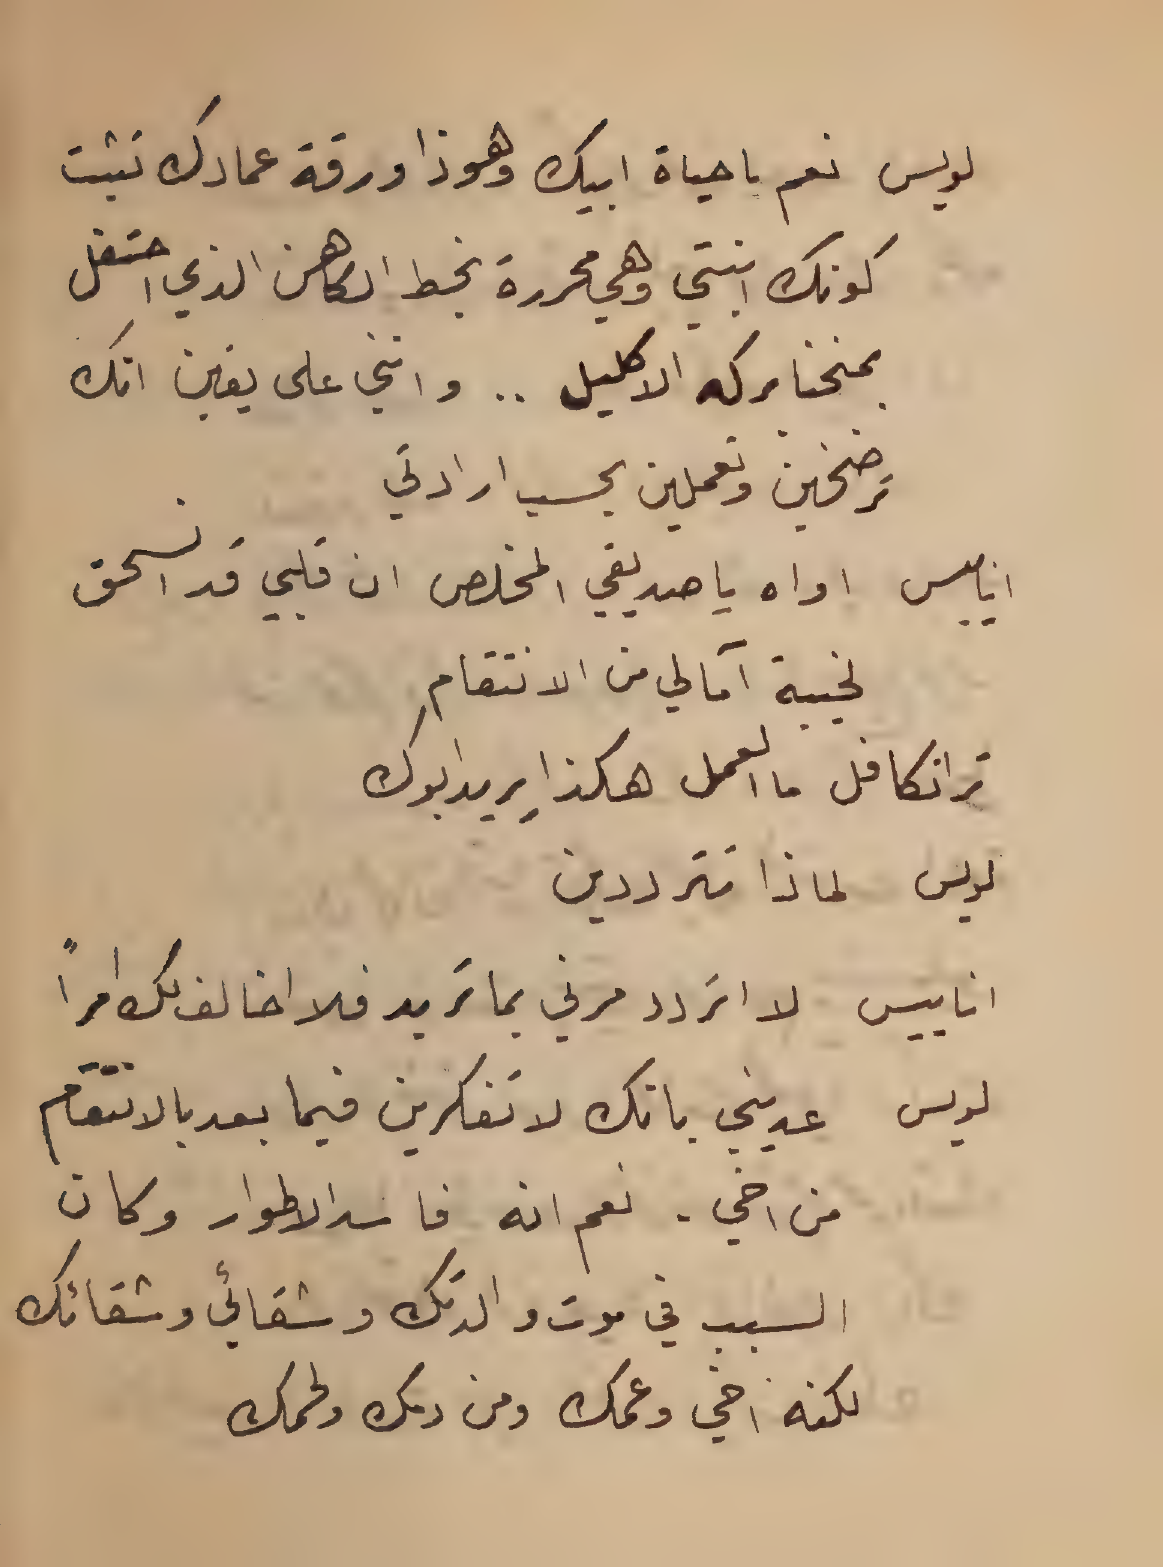 لويس نعم يا حياة ابيك وهوذا ورقة عمادك تثبت
كونك ابنتي وهي محررة بخط الكاهن الذي احتفل
بمنحنا بركه الاكليل .. وانني على يقين انك
ترضخين وتعملين بحسب ارادتي
اناييس اواه يا صديقي المخلص ان قلبي قد انسحق
لخيبة آمالي من الانتقام
ترانكافل ما العمل هكذا يريد ابوك
لويس لماذا تترددين
اناييس لا اتردد مرني بما تريد فلا اخالف لك امراً
لويس عديني بانك لا تفكرين فيما بعد بالانتقام
من اخي . نعم انه فاسد الاطوار وكان
السبب في موت والدتك وشقائي وشقائك
لكنه اخي وعمك ومن دمك ولحمك